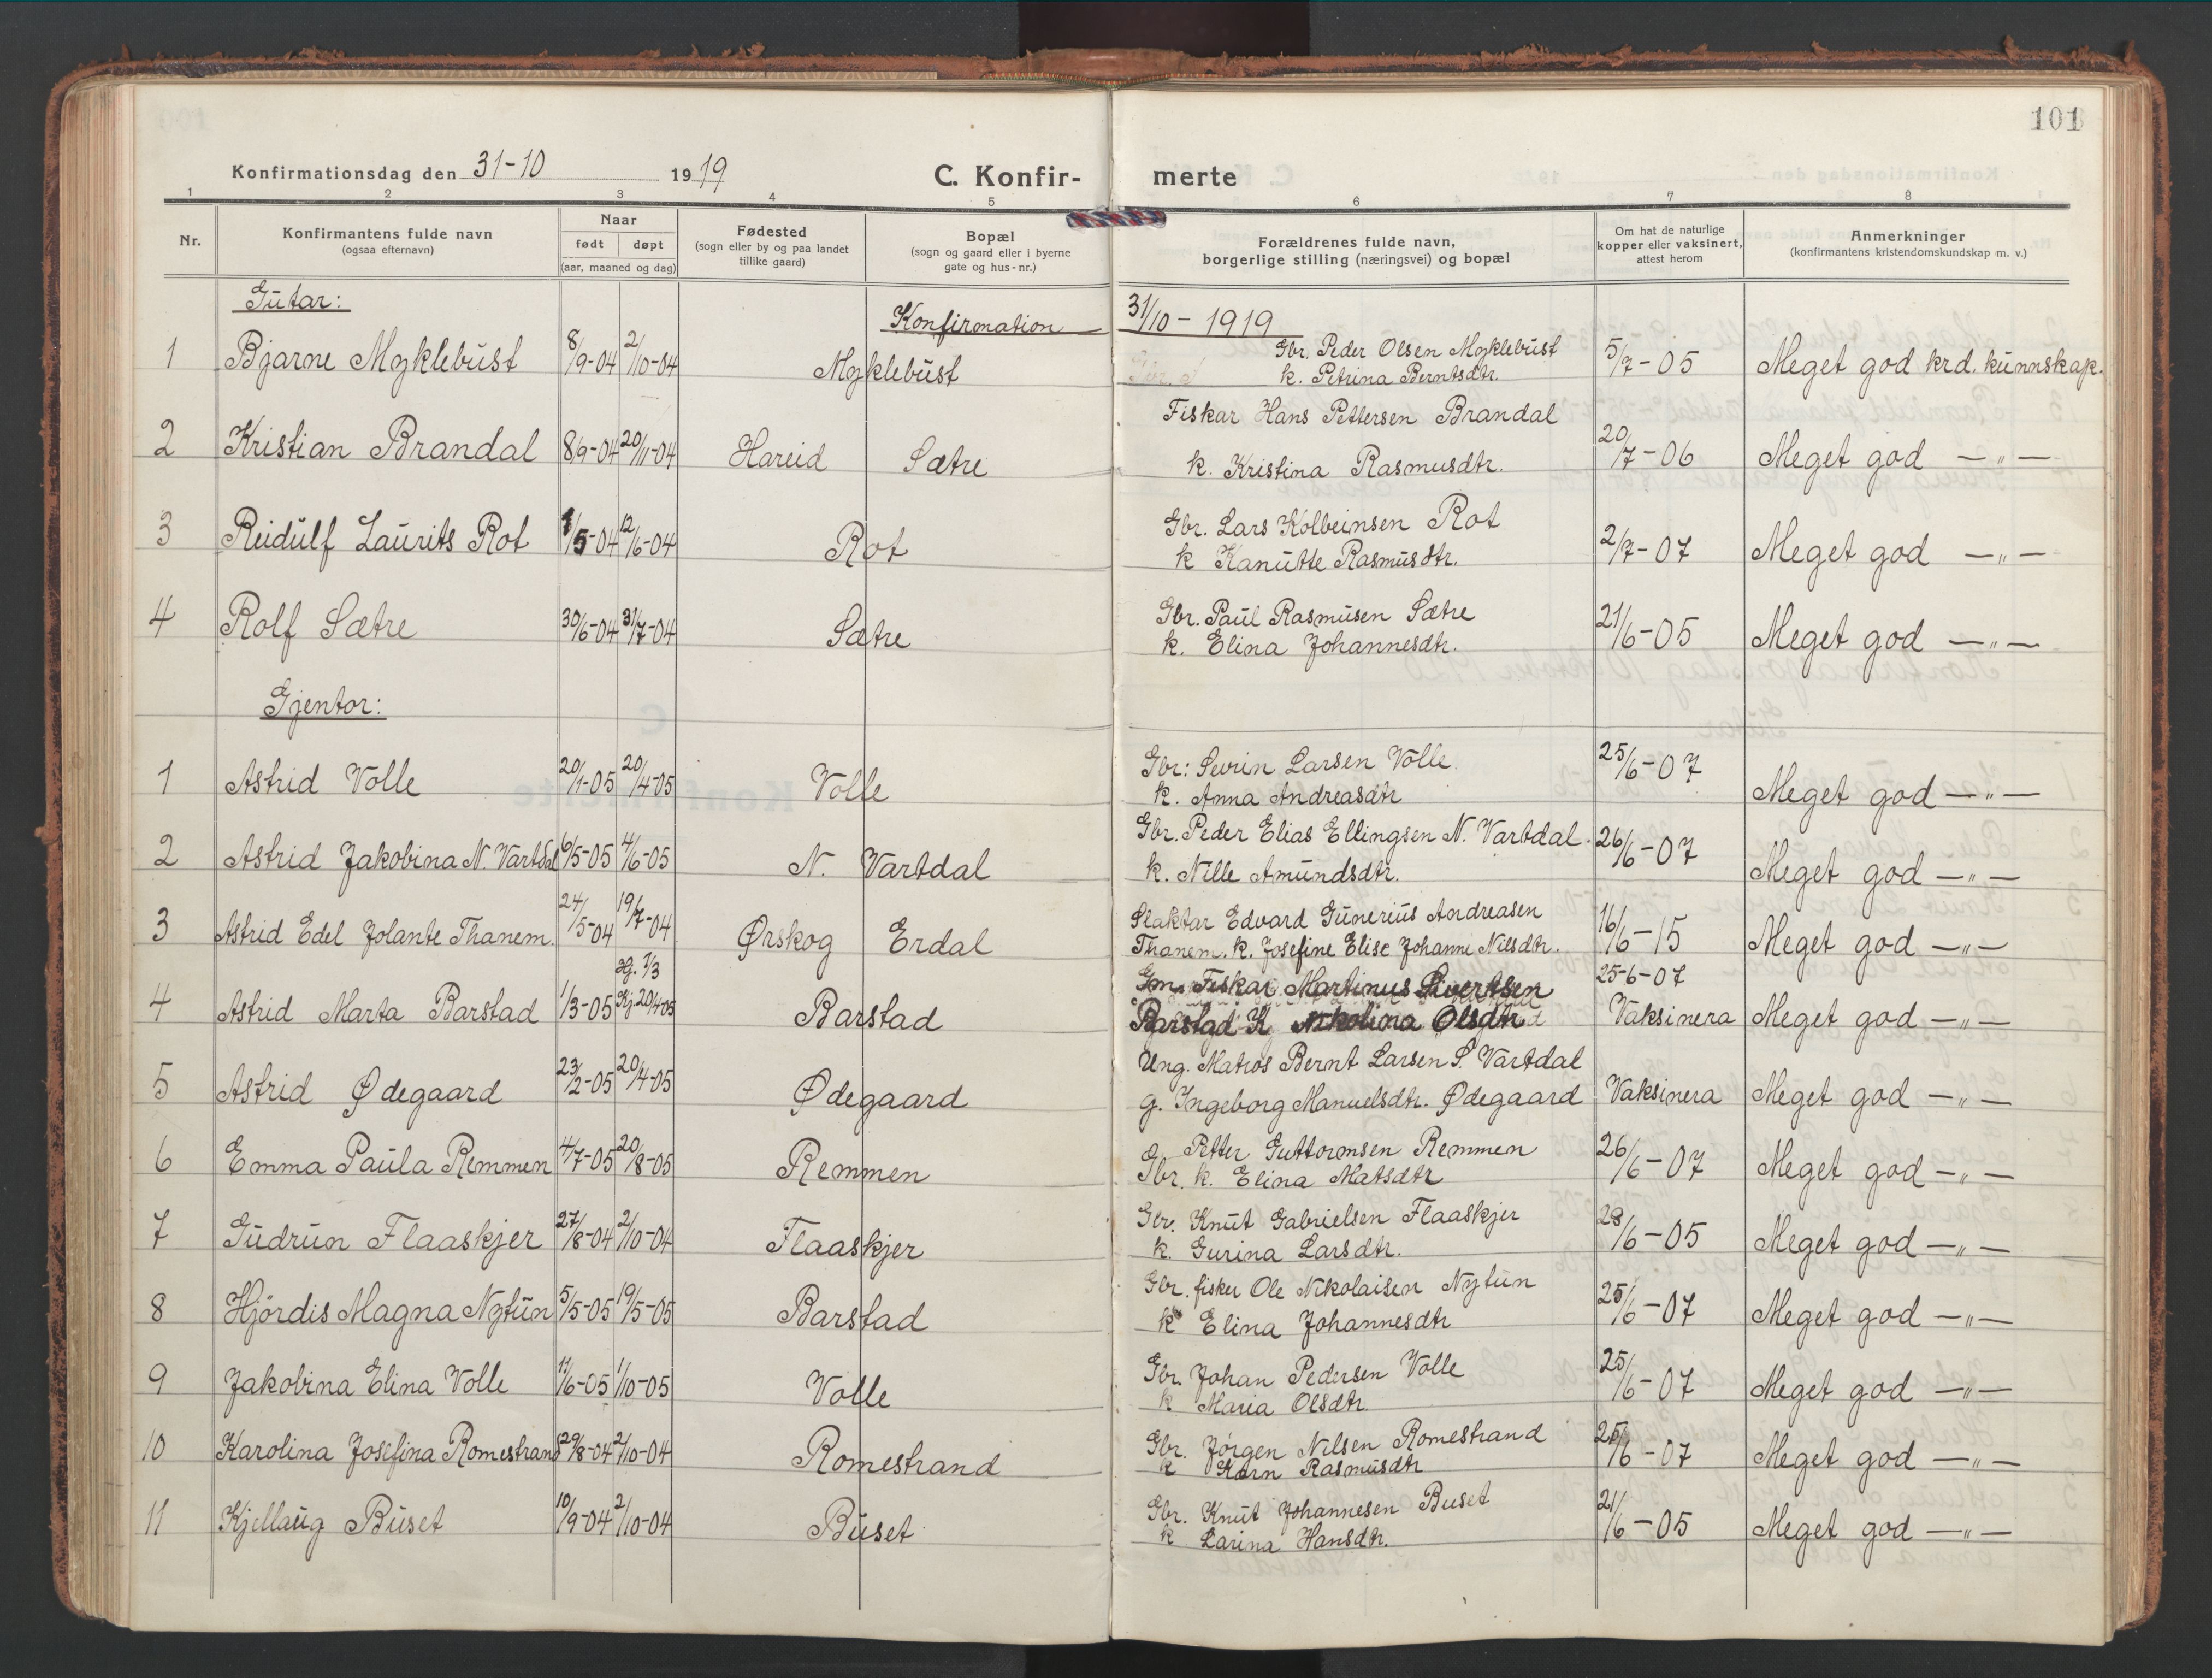 101
Konfirmationsdag den 31-10 1919
C. Konfir- merte
1 2 3 4 5 6 7 8
Nr.
Konfirmantens fulde navn
(ogsaa efternavn)
Naar
født døpt
(aar, maaned og dag)
Fødested
(sogn eller by og paa landet
tillike gaard)
Bopæl
(sogn og gaard eller i byerne
gate og hus-nr.)
Forældrenes fulde navn,
borgerlige stilling (næringsvei) og bopæl
Om hat de naturlige
kopper eller vaksinert,
attest herom
Anmerkninger
(konfirmantens kristendomskundskap m. v.)
Gutar:
Konfirmation 31/10 - 1919
1 Bjarne Myklebust 8/9-04 2/10-04 Myklebust Gbr. Peder Olsen Myklebust 5/7-05 Meget god krd. kunnskap.
k. Petrina Berntsdtr.
2 Kristian Brandal 8/9-04 20/11-04 Hareid Sætre Fiskar Hans Pettersen Brandal 20/7-06 Meget god —„—
k. Kristina Rasmusdtr.
3 Reidulf Laurits Rot /5-04 12/6-04 Rot Gbr. Lars Kolbeinsen Rot 2/7-07 Meget god —„—
k Kanutte Rasmusdtr.
4 Rolf Sætre 30/6-04 31/7-04 Sætre Gbr. Paul Rasmusen Sætre 21/6-05 Meget god —„—
k. Elina Johannesdtr.
Gjentor:
1 Astrid Volle 20/1-05 20/4-05 Volle Gbr: Sevrin Larsen Volle 25/6-07 Meget god —„—
k. Anna Andreasdtr
2 Astrid Jakobina N. Vartdal 6/5-05 4/6-05 N. Vartdal Gbr. Peder Elias Ellingsen N. Vartdal. 26/6-07 Meget god —„—
k. Nille Amundsdtr.
3 Astrid Edel Jolante Thanem. 24/5-04 19/7-04 Ørskog Erdal Slaktar Edvard Gunerius Andreasen 16/6-15 Meget god —„—
Thanem. k. Josefine Elise Johanne Nilsdtr.
4 Astrid Marta Barstad 1/3-05 Hj. 7/3 Kj. 20/4-05 Barstad Gm. Fiskar Martinus Sivertsen 25-6-07 Vaksinera Meget god —„—
Barstad K Nikolina Olsdtr
5 Astrid Ødegaard 23/2-05 20/4-05 Ødegaard Ung. Matros Bernt Larsen S. Vartdal Vaksinera Meget god —„—
g. Ingeborg Manuelsdtr. Ødegaard
6 Emma Paula Remmen 4/7-05 20/8-05 Remmen Petter Guttormsen Remmen 26/6-07 Meget god —„—
Gbr. k. Elina Matsdtr
7 Gudrun Flaaskjer 27/8-04 2/10-04 Flaaskjer Gbr. Knut Gabrielsen Flaaskjer 28/6-05 Meget god —„—
k. Gurina Larsdtr.
8 Hjördis Magna Nytun 5/5-05 19/5-05 Barstad Gbr. fisker Ole Nikolaisen Nytun 25/6-07 Meget god —„—
k Elina Johannesdtr
9 Jakobina Elina Volle 11/6-05 1/10-05 Volle Gbr. Johan Pedersen Volle 25/6-07 Meget god —„—
k Maria Olsdtr.
10 Karolina Josefina Romestrand 29/8-04 2/10-04 Romestrand Gbr. Jörgen Nilsen Romestrand 25/6-07 Meget god —„—
k Karn Rasmusdtr
11 Kjellaug Buset 10/9-04 2/10-04 Buset Gbr. Knut Johannesen Buset 21/6-05 Meget god —„—
k Larina Hansdtr.